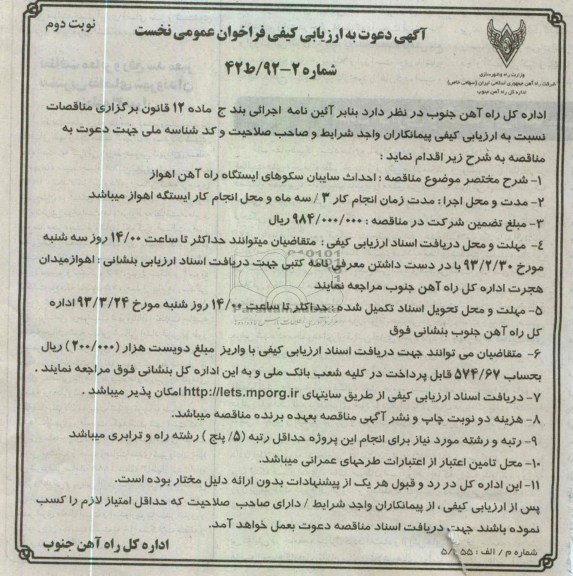 نوبت دوم
آگهی دعوت به ارزیابی کیفی فراخوان عمومی نخست
شماره ۲-۹۲/ط۴۲
وزارت راه و شهرسازی
شرکت راه آهن جمهوری اسلامی ایران (سهامی خاص)
اداره کل راه آهن جنوب
اداره کل راه آهن جنوب در نظر دارد بنابر آئین نامه اجرائی بند ج ماده ۱۲ قانون برگزاری مناقصات
نسبت به ارزیابی کیفی پیمانکاران واجد شرایط و صاحب صلاحیت و کد شناسه ملی جهت دعوت به
مناقصه به شرح زیر اقدام نماید :
۱- شرح مختصر موضوع مناقصه : احداث سایبان سکوهای ایستگاه راه آهن اهواز
۲- مدت و محل اجرا : مدت زمان انجام کار ۳ / سه ماه و محل انجام کار ایستگاه اهواز میباشد
۳- مبلغ تضمین شرکت در مناقصه : ۹۸۴/۰۰۰/۰۰۰ ریال
۴- مهلت و محل دریافت اسناد ارزیابی کیفی : متقاضیان میتوانند حداکثر تا ساعت ۱۴/۰۰ روز سه شنبه
مورخ ۹۳/۲/۳۰ با در دست داشتن معرفی نامه کتبی جهت دریافت اسناد ارزیابی بنشانی : اهواز میدان
هجرت اداره کل راه آهن جنوب مراجعه نمایند
۵- مهلت و محل تحویل اسناد تکمیل شده : حداکثر تا ساعت ۱۴/۰۰ روز شنبه مورخ ۹۳/۳/۲۴ اداره
کل راه آهن جنوب بنشانی فوق
۶- متقاضیان می توانند جهت دریافت اسناد ارزیابی کیفی با واریز مبلغ دویست هزار (۲۰۰/۰۰۰) ریال
بحساب ۵۷۴/۶۷ قابل پرداخت در کلیه شعب بانک ملی و به این اداره کل بنشانی فوق مراجعه نمایند .
۷- دریافت اسناد ارزیابی کیفی از طریق سایتهای http://iets.mporg.ir امکان پذیر میباشد .
۸- هزینه دو نوبت چاپ و نشر آگهی مناقصه بعهده برنده مناقصه میباشد.
۹- رتبه و رشته مورد نیاز برای انجام این پروژه حداقل رتبه (۵/ پنج ) رشته راه و ترابری میباشد
۱۰- محل تامین اعتبار از اعتبارات طرحهای عمرانی میباشد.
۱۱- این اداره کل در رد و قبول هر یک از پیشنهادات بدون ارائه دلیل مختار بوده است.
پس از ارزیابی کیفی ، از پیمانکاران واجد شرایط / دارای صاحب صلاحیت که حداقل امتیاز لازم را کسب
نموده باشند جهت دریافت اسناد مناقصه دعوت بعمل خواهد آمد.
اداره کل راه آهن جنوب
شماره م / الف : ۵/ ۵۵